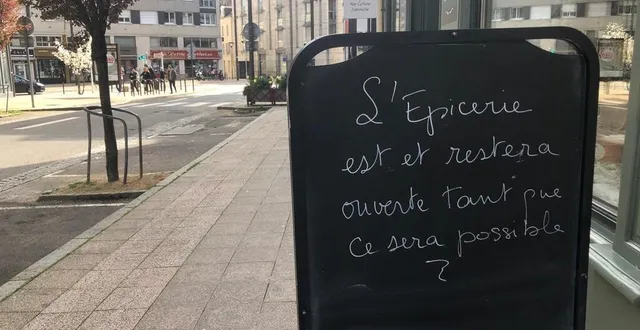 L'Epicerie
est et restera
ouverte tant que
ce sera possible